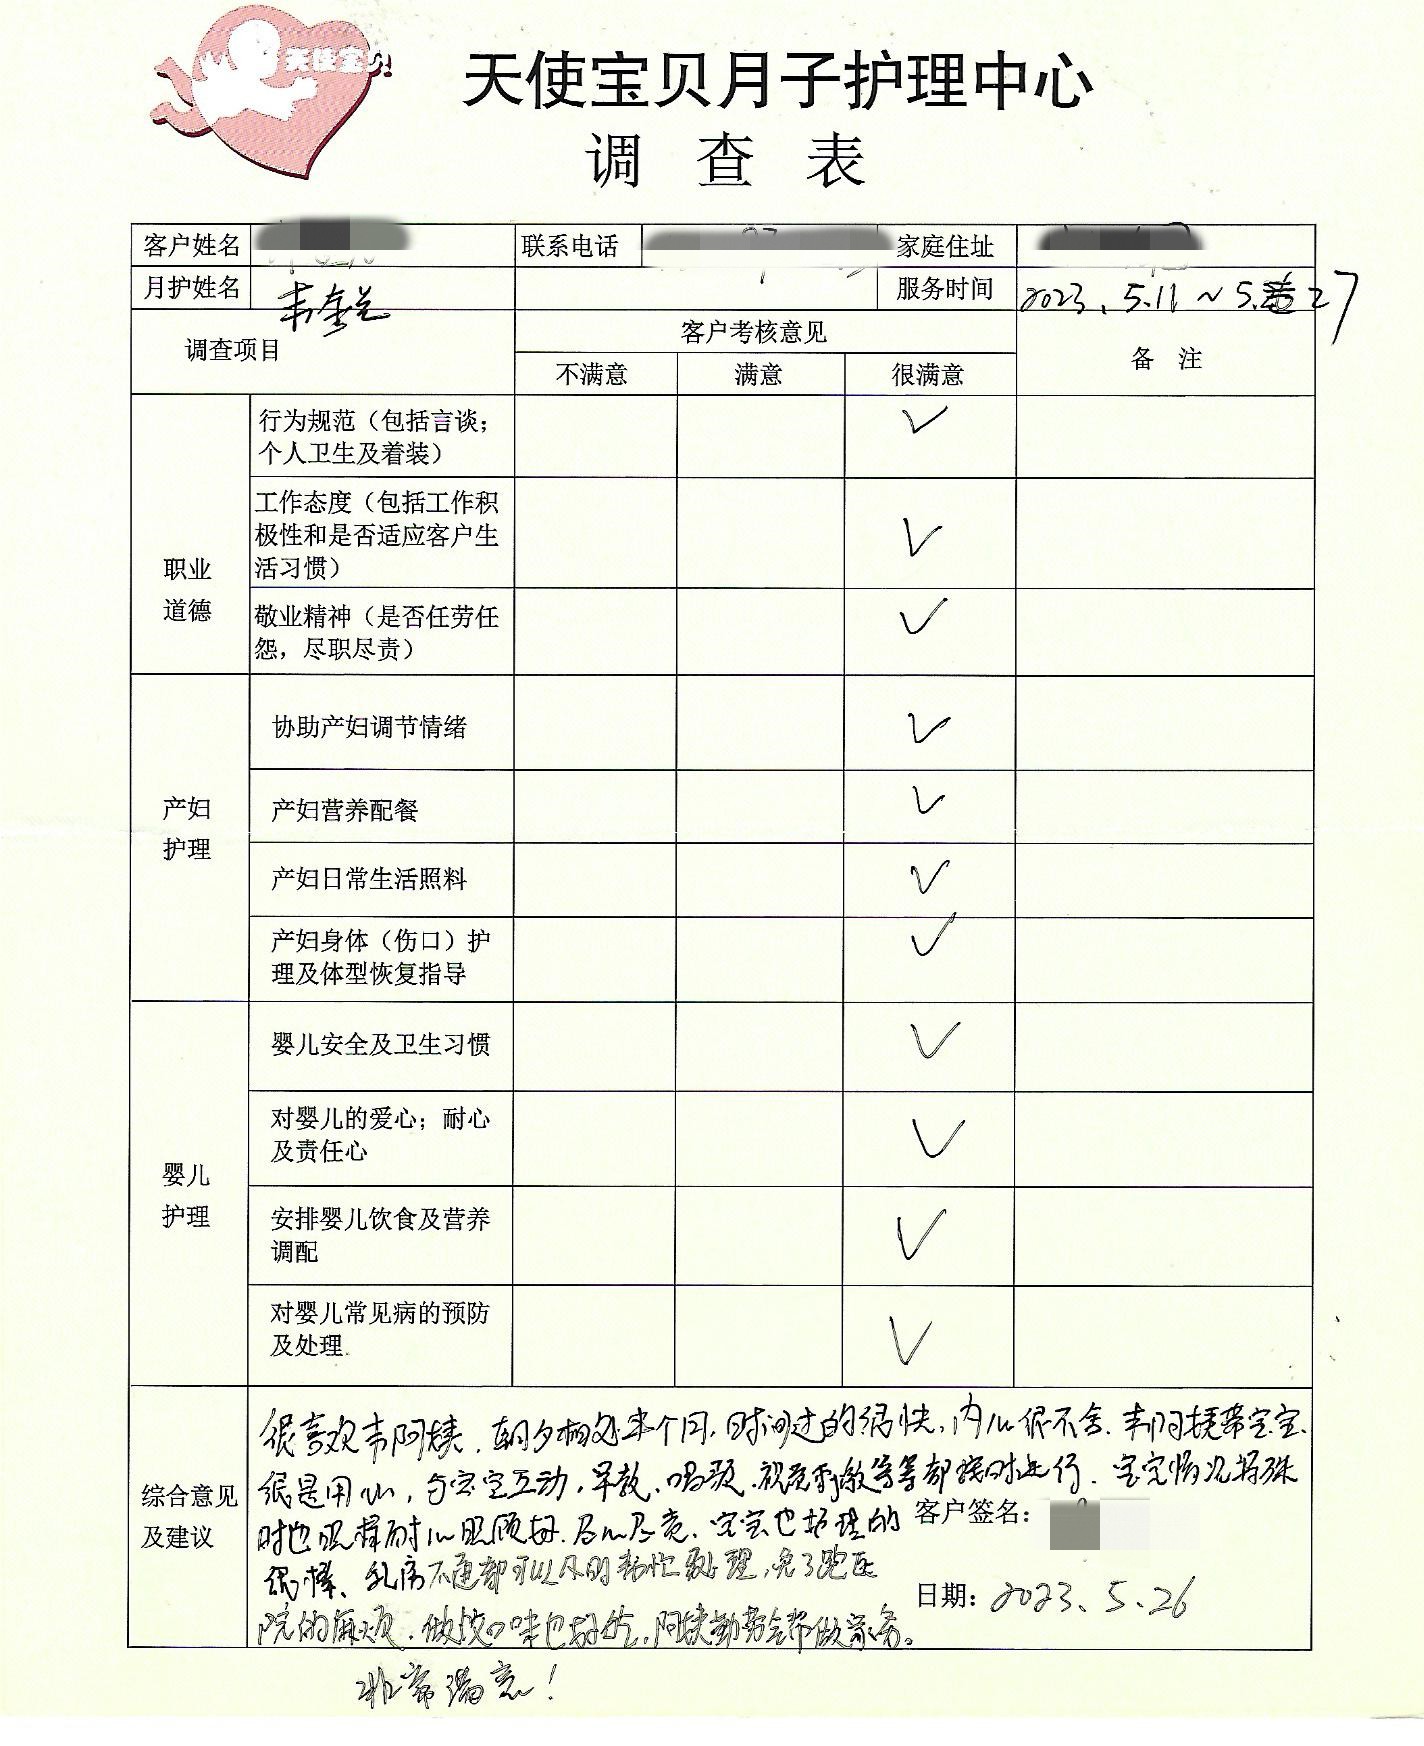 天使宝贝
天使宝贝月子护理中心
调查表
客户姓名 联系电话 家庭住址
月护姓名 韦奎兰 服务时间 2023.5.11～5.27
调查项目 客户考核意见 备注
不满意 满意 很满意
职业
道德
行为规范（包括言谈；
个人卫生及着装） ✓
工作态度（包括工作积
极性和是否适应客户生
活习惯） ✓
敬业精神（是否任劳任
怨，尽职尽责） ✓
产妇
护理
协助产妇调节情绪 ✓
产妇营养配餐 ✓
产妇日常生活照料 ✓
产妇身体（伤口）护
理及体型恢复指导 ✓
婴儿
护理
婴儿安全及卫生习惯 ✓
对婴儿的爱心；耐心
及责任心 ✓
安排婴儿饮食及营养
调配 ✓
对婴儿常见病的预防
及处理. ✓
综合意见
及建议
很喜欢韦阿姨，朝夕相处半个月，时间过的很快，内心很不舍，韦阿姨带宝宝
很是用心，与宝宝互动，早教、唱歌、视觉刺激等等都按时进行，宝宝情况特殊
时也照样耐心照顾好，尽心尽责，宝宝也护理的
很棒、乳房不通都可以及时看忙处理，免了跑医
院的麻烦，做饭口味也好吃，阿姨勤劳会帮做家务。
非常满意！
客户签名：
日期：2023.5.26